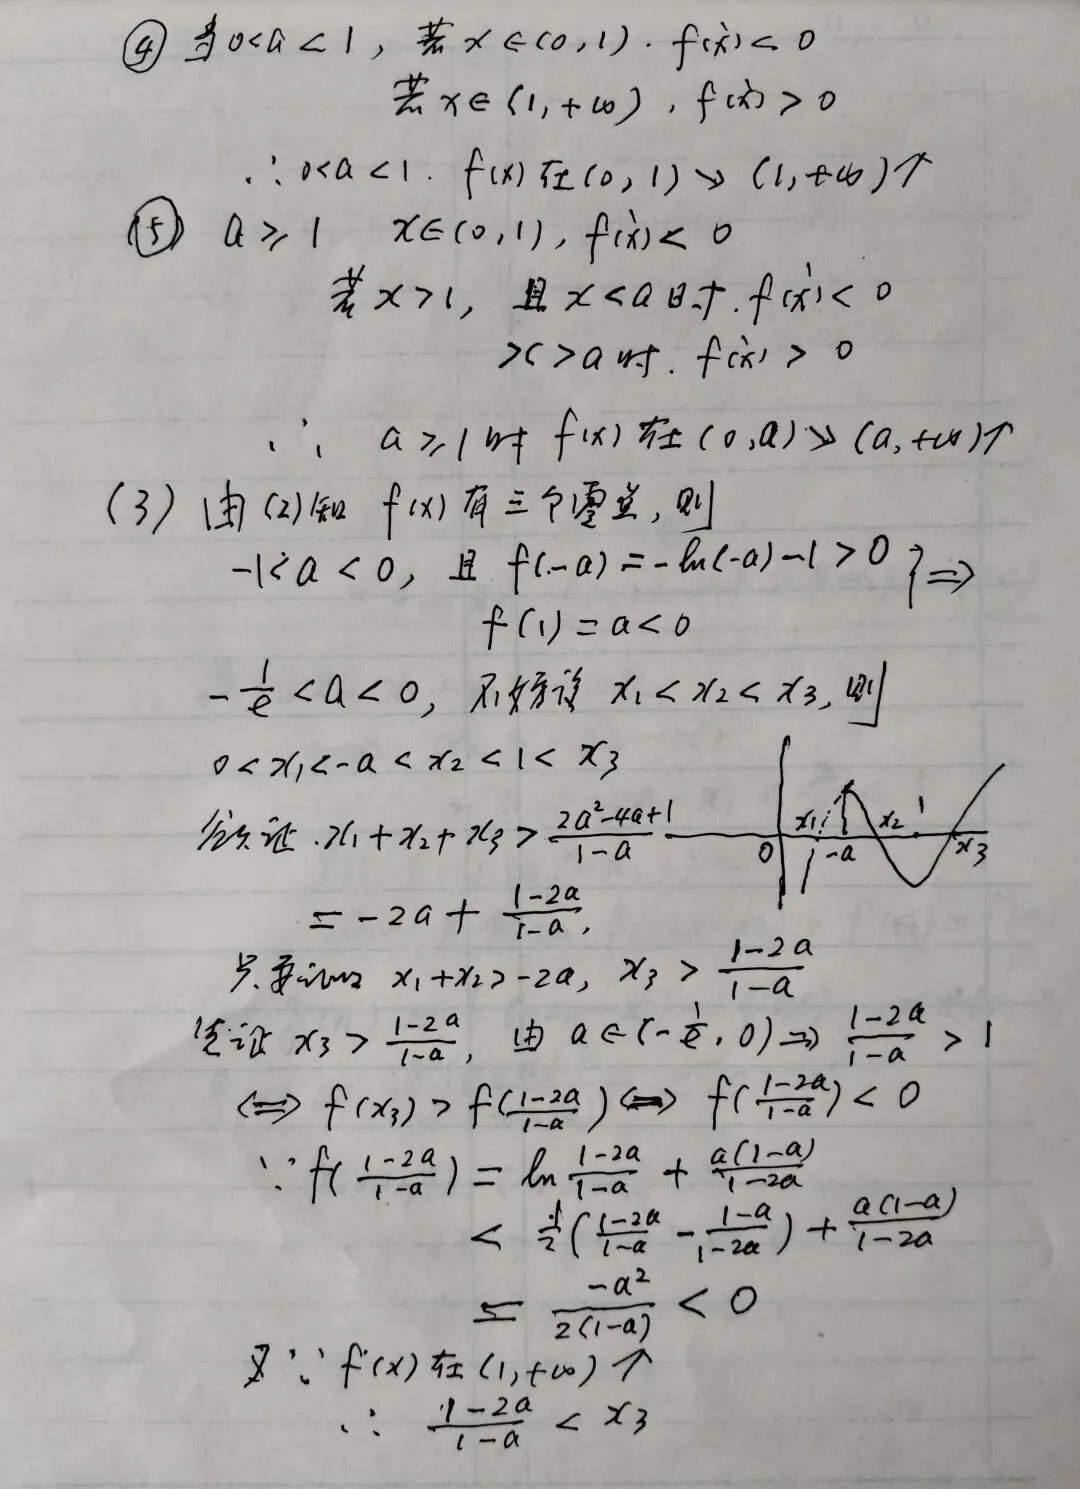 ④ 当0<a<1, 若x∈(0,1). f'(x)<0
若x∈(1,+∞), f'(x)>0
∴0<a<1. f(x)在(0,1)↘ (1,+∞)↑
⑤ a≥1 x∈(0,1), f'(x)<0
若x>1, 且x<a时. f'(x)<0
x>a时. f'(x)>0
∴ a≥1时 f(x)在(0,a)↘(a,+∞)↑
(3) 由(2)知 f(x)有三个零点,则
-1<a<0, 且 f(-a)=-ln(-a)-1>0 }⇒
f(1)=a<0
-1/e<a<0, 不妨设 x₁<x₂<x₃,则
0<x₁<-a<x₂<1<x₃
欲证.x₁+x₂+x₃>(2a²-4a+1)/(1-a)
x₁ x₂ 1
0 -a x₃
=-2a+(1-2a)/(1-a),
只要证 x₁+x₂>-2a, x₃>(1-2a)/(1-a)
先证 x₃>(1-2a)/(1-a), 由 a∈(-1/e,0)⇒(1-2a)/(1-a)>1
⇔f(x₃)>f((1-2a)/(1-a))⇔f((1-2a)/(1-a))<0
∵f((1-2a)/(1-a))=ln (1-2a)/(1-a)+a(1-a)/(1-2a)
<1/2((1-2a)/(1-a)-(1-a)/(1-2a))+a(1-a)/(1-2a)
=-a²/2(1-a)<0
又∵f(x)在(1,+∞)↑
∴ (1-2a)/(1-a)<x₃